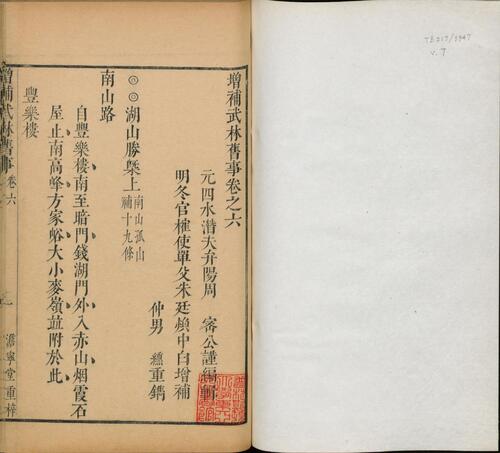 增補武林舊事卷之六
元四水潛夫弁陽周 密公謹編輯
明冬官榷使單父朱廷煥中白增補
仲男 繻重鐫
◎◎湖山勝槩上 南山孤山
補十九條
南山路
自豐樂樓南至暗門錢湖門外入赤山烟霞石
屋止南高峰方家峪大小麥嶺竝附於此
豐樂樓
增補武林舊事 卷六
一
澹寧堂重梓
TB 217/1947
v.7